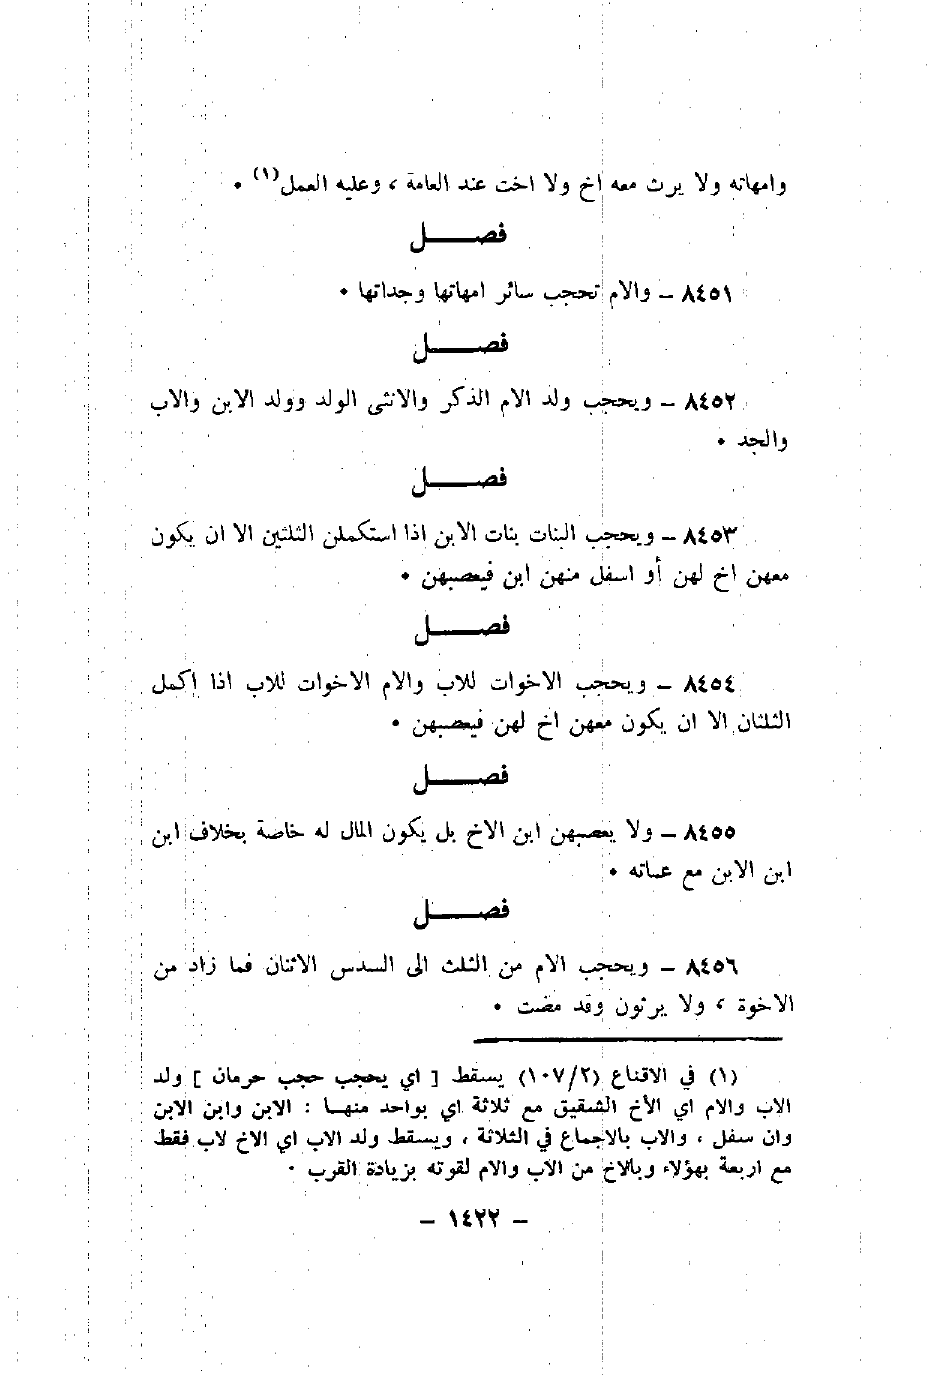 وامهاته ولا يرث معه اخ ولا اخت عند العامة ، وعليه العمل(١) •
فصـــــل
٨٤٥١ ــ والام تحجب سائر امهاتها وجداتها •
فصـــــل
٨٤٥٢ ــ ويحجب ولد الام الذكر والانثى الولد وولد الابن والاب
والجد •
فصـــــل
٨٤٥٣ ــ ويحجب البنات بنات الابن اذا استكملن الثلثين الا ان يكون
معهن اخ لهن أو اسفل منهن ابن فيعصبهن •
فصـــــل
٨٤٥٤ ــ ويحجب الاخوات للاب والام الاخوات للاب اذا اكمل
الثلثان الا ان يكون معهن اخ لهن فيعصبهن •
فصـــــل
٨٤٥٥ ــ ولا يعصبهن ابن الاخ بل يكون المال له خاصة بخلاف ابن
ابن الابن مع عماته •
فصـــــل
٨٤٥٦ ــ ويحجب الام من الثلث الى السدس الاثنان فما زاد من
الاخوة ، ولا يرثون وقد مضت •
(١) في الاقناع (١٠٧/٢) يسقط [ اي يحجب حجب حرمان ] ولد
الاب والام اي الأخ الشقيق مع ثلاثة اي بواحد منهـا : الابن وابن الابن
وان سفل ، والاب بالاجماع في الثلاثة ، ويسقط ولد الاب اي الاخ لاب فقط
مع اربعة بهؤلاء وبالاخ من الاب والام لقوته بزيادة القرب •
ــ ١٤٢٢ ــ